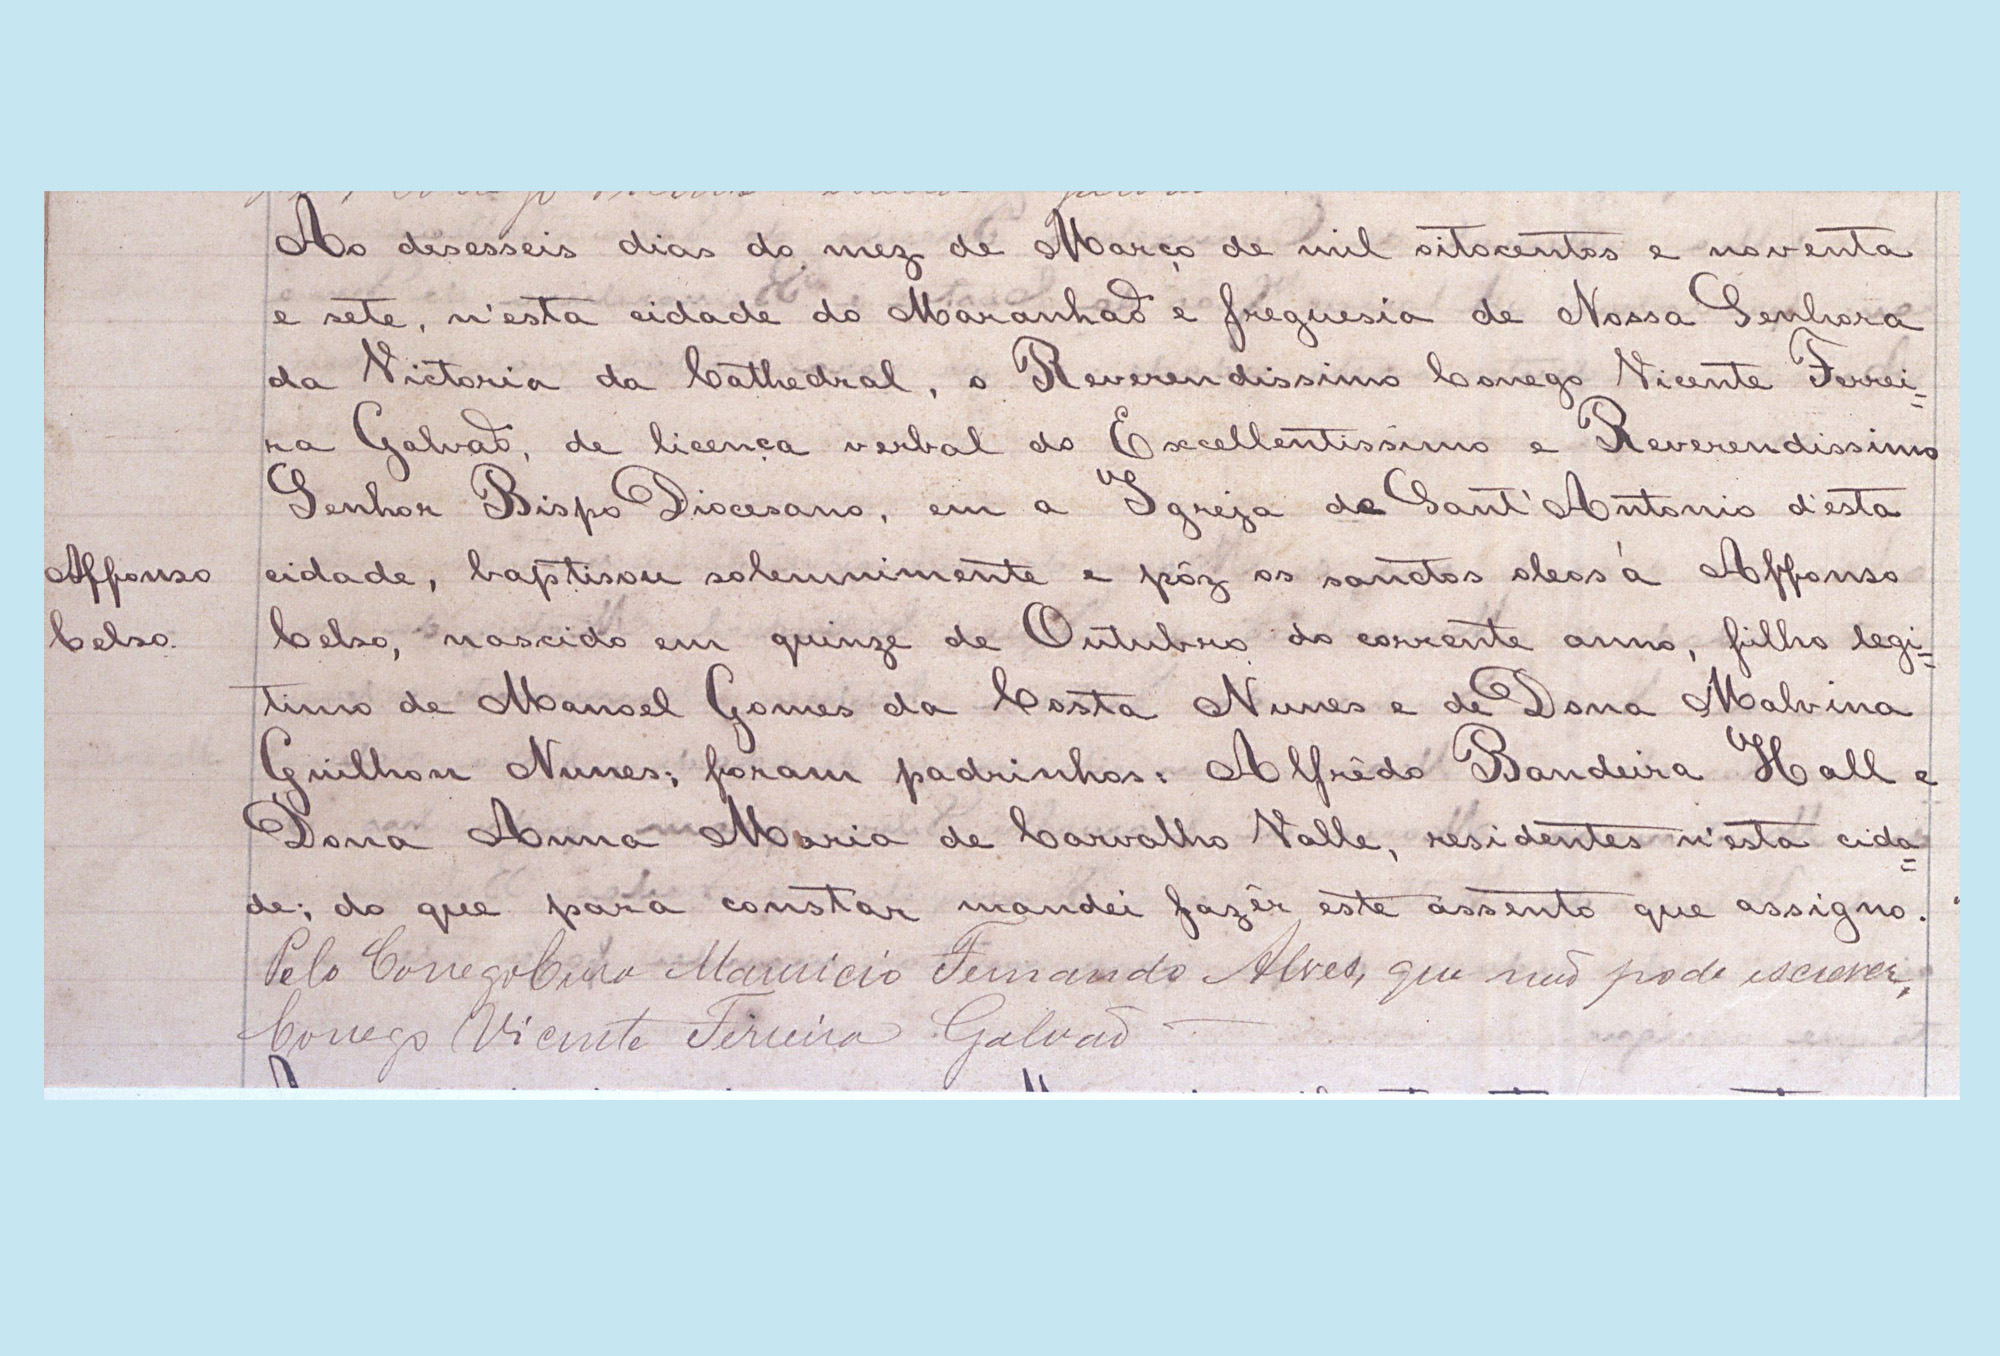 Ao desesseis dias do mez de Março de mil oitocentos e noventa
e sete, n'esta cidade do Maranhaõ e freguesia de Nossa Senhora
da Victoria da Cathedral, o Reverendissimo Conego Vicente Ferrei=
ra Galvaõ, de licença verbal do Excellentissimo e Reverendissimo
Senhor Bispo Diocesano, em a Igreja de Sant'Antonio d'esta
Affonso
Celso.
cidade, baptisou solemnimente e pôz os sanctos oleos á Affonso
Celso, nascido em quinze de Outubro do corrente anno, filho legi=
timo de Manoel Gomes da Costa Nunes e de Dona Malvina
Guilhon Nunes; foram padrinhos: Alfrêdo Bandeira Hall e
Dona Anna Maria de Carvalho Valle, residentes n'esta cida=
de; do que para constar mandei fazêr este assento que assigno.
Pelo Conego Cura Mauricio Fernando Alves, que naõ pode escrever,
Conego Vicente Ferreira Galvaõ